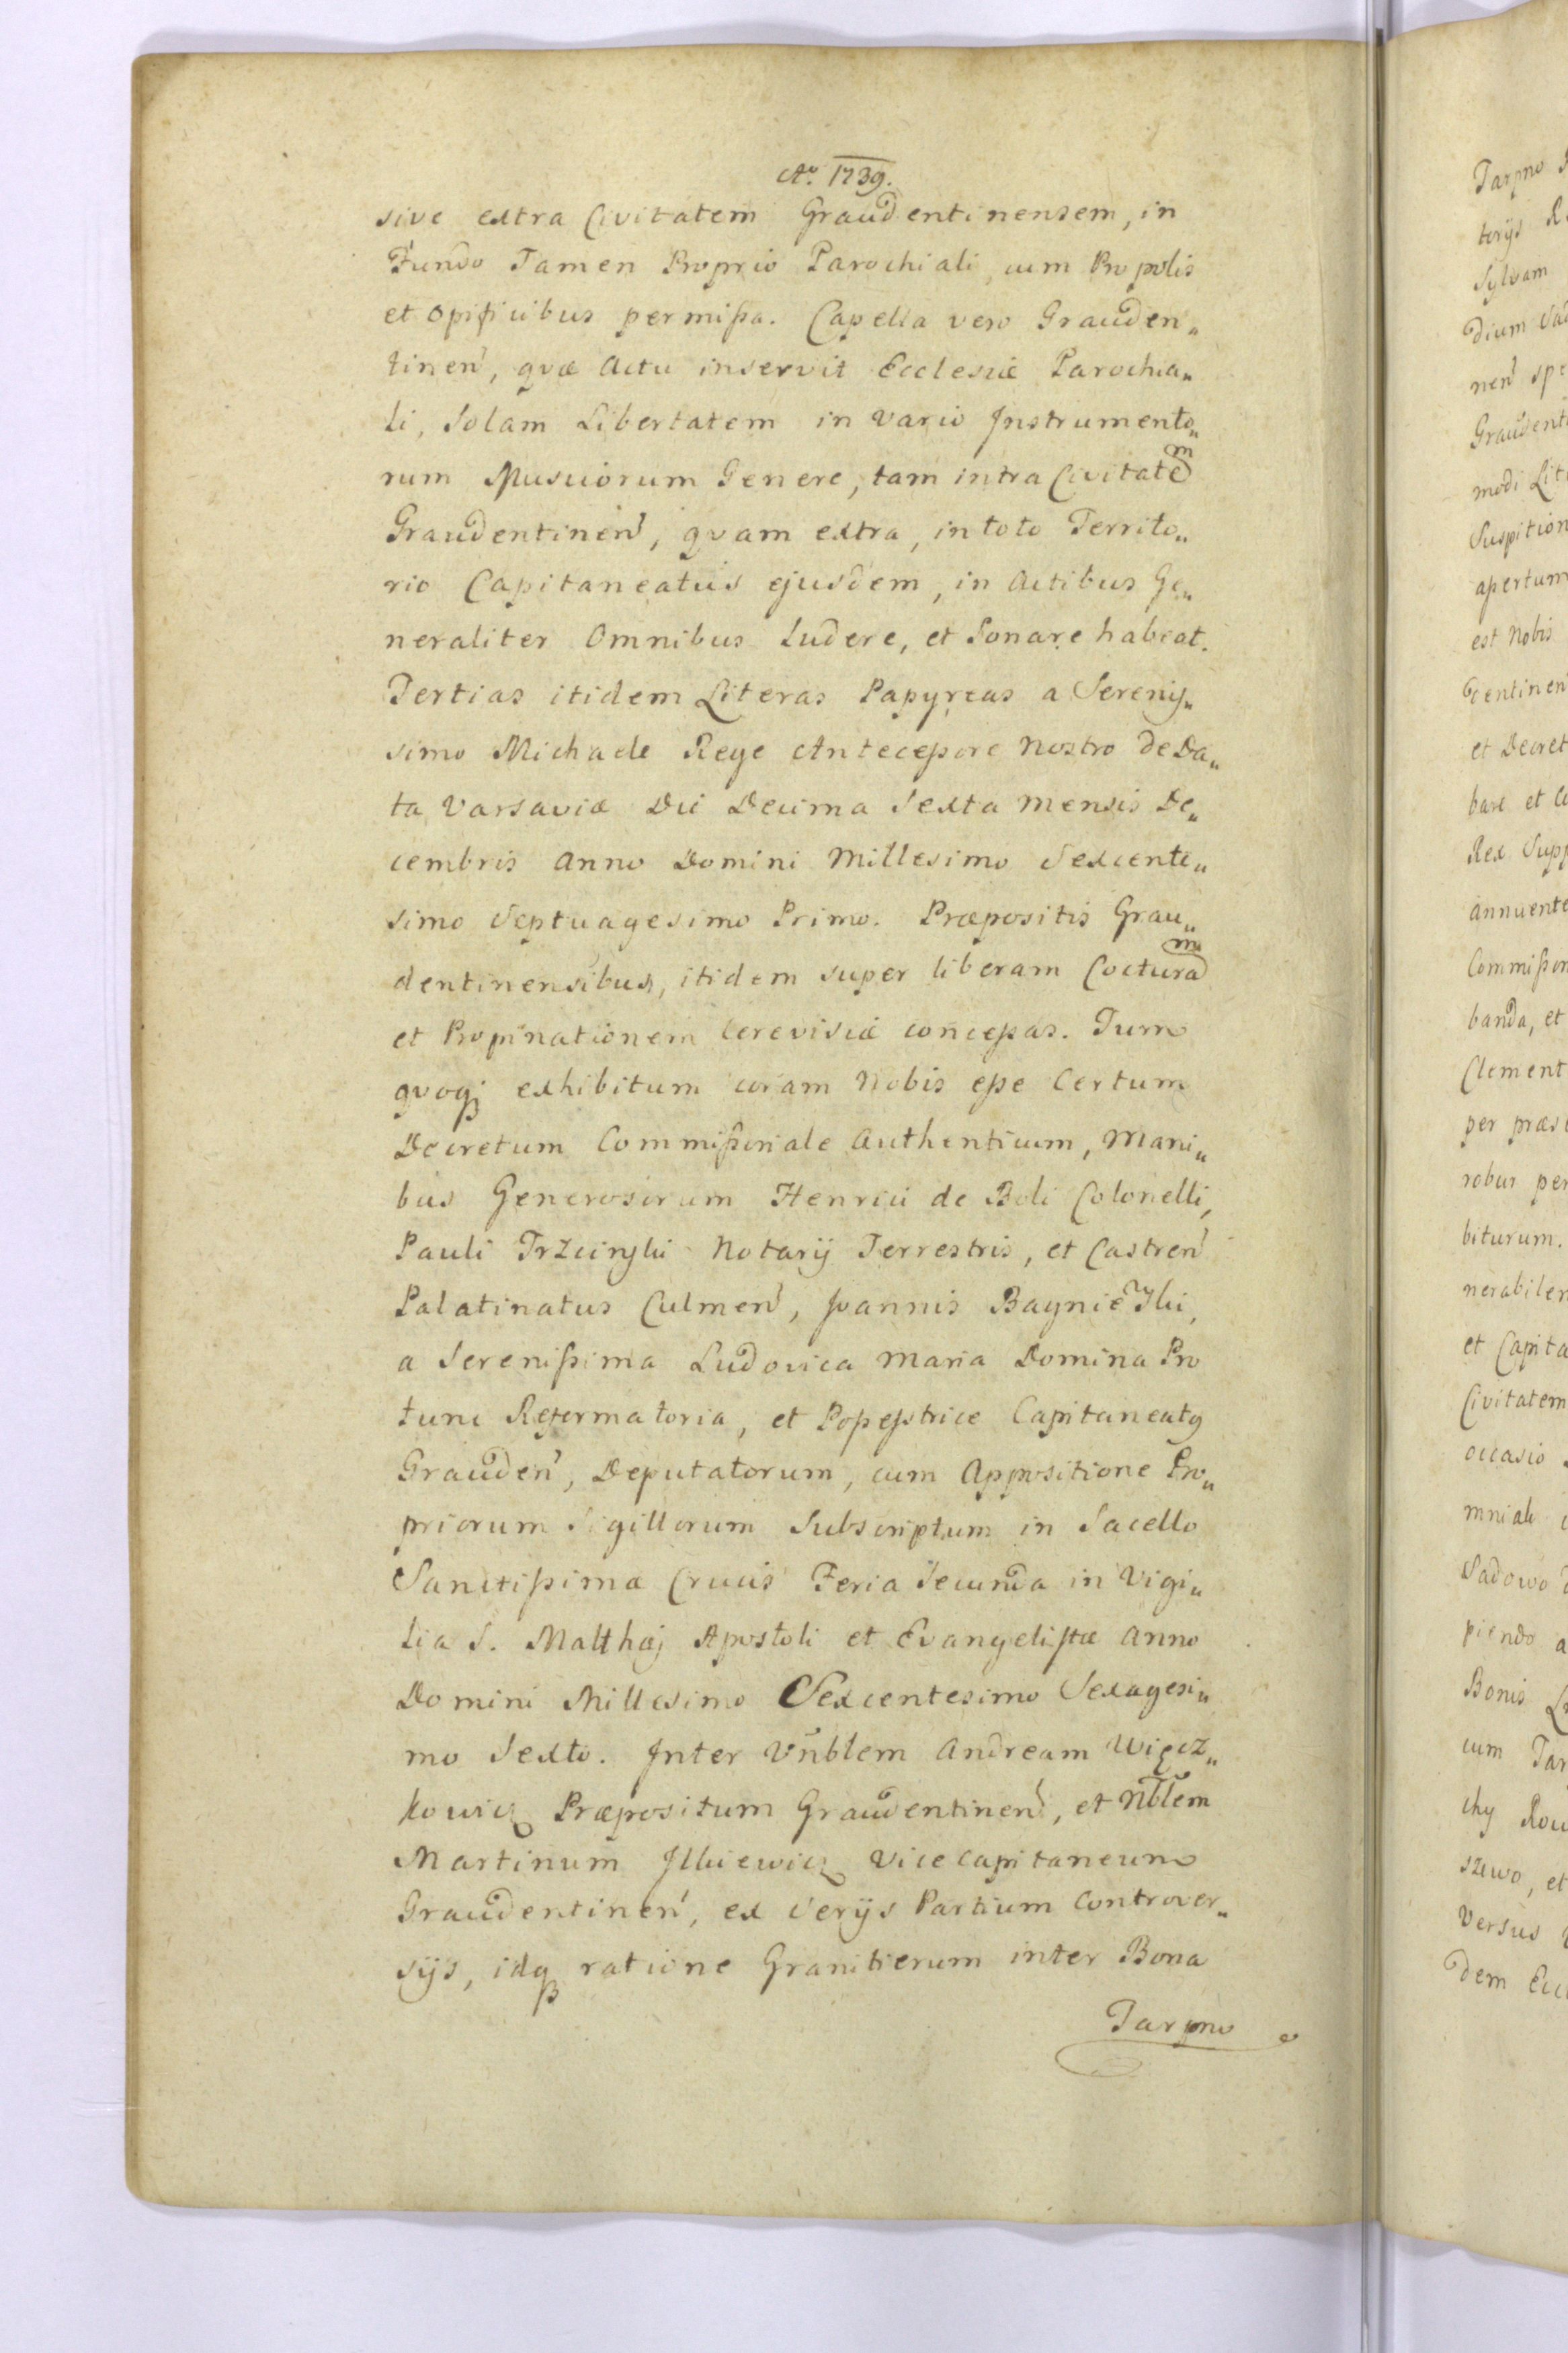 Aº. 1739.
sive extra Civitatem Graudentinensem, in
Fundo Tamen Proprio Parochiali, cum Propolis
et opificibus permissa. Capella vero Grauden„
tinen̄, qvæ Actu inservit Ecclesiæ Parochia„
li, Solam Libertatem in vario Instrumento„
rum Musicorum Genere, tam intra Civitatem
Graudentinen̄, qvam extra, in toto Territo„
rio Capitaneatus ejusdem, in Actibus Ge„
neraliter Omnibus Ludere, et Sonare habeat.
Tertias itidem Literas Papyreas a Serenis„
simo Michaele Rege Antecessore Nostro de Da„
ta Varsaviæ Die Decima Sexta mensis De„
cembris Anno Domini Millesimo Sexcente„
simo Septuagesimo Primo. Præpositis Grau„
dentinensibus, itidem super liberam Cocturam
et Propinationem Cerevisiæ concessas. Tum
qvoqꝫ exhibitum coram Nobis esse Certum
Decretum Commissoriale Authenticum, Mani„
bus Generosorum Henrici de Boli Colonelli,
Pauli Trzcinski Notarij Terrestris, et Castren̄
Palatinatus Culmen̄, Joannis
a Serenissima Ludovica Maria Domina Pro
tunc Reformatoria, et Possestrice Capitaneatꝯ
Grauden̄, Deputatorum, cum Appositione Pro„
priorum Sigillorum Subscriptum in Sacello
Sanctissimæ Crucis Feria Secunda in Vigi„
lia S. Matthæj Apostoli et Evangelistæ Anno
Domini Millesimo Sexcentesimo Sexagesi„
mo Sexto. Inter Vn̄blem Andream Więcz„
kowicz Præpositum Graudentinen̄, et Nb̄lem
Martinum Ilkiewicz Vice Capitaneum
Graudentinen̄, ex Serijs Partium Controver„
sijs, idqꝫ ratione Granitierum inter Bona
Tarpno
Tarpno
torijs
Sylvam
dium
nen̄
Graudent
modi Lit
Suspition
apertum
est Nobis
dentinen
et Decret
bare et Co
Rex Supp
annuente
Commissor
banda, et
Clement
per præs
robur per
biturum.
nerabilem
et Capita
Civitatem
occasio
mniali
Sadowo
piendo a
Bonis
cum Tar
chy Rou
szewo, et
versus
dem Eccl